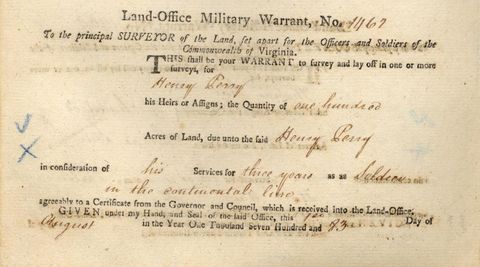 Land-Office Military Warrant, No. 1462
To the principal SURVEYOR of the Land, set apart for the Officers and Soldiers of the
Commonwealth of Virginia.
THIS shall be your WARRANT to survey and lay off in one or more
surveys, for
Henry Perry
his Heirs or Assigns; the Quantity of one hundred
Acres of Land, due unto the said Henry Perry
in consideration of his Services for three years as a Soldier
in the continental line
agreeably to a Certificate from the Governor and Council, which is received into the Land-Office.
GIVEN under my Hand, and Seal of the said Office, this 1st Day of
August in the Year One Thousand Seven Hundred and 83